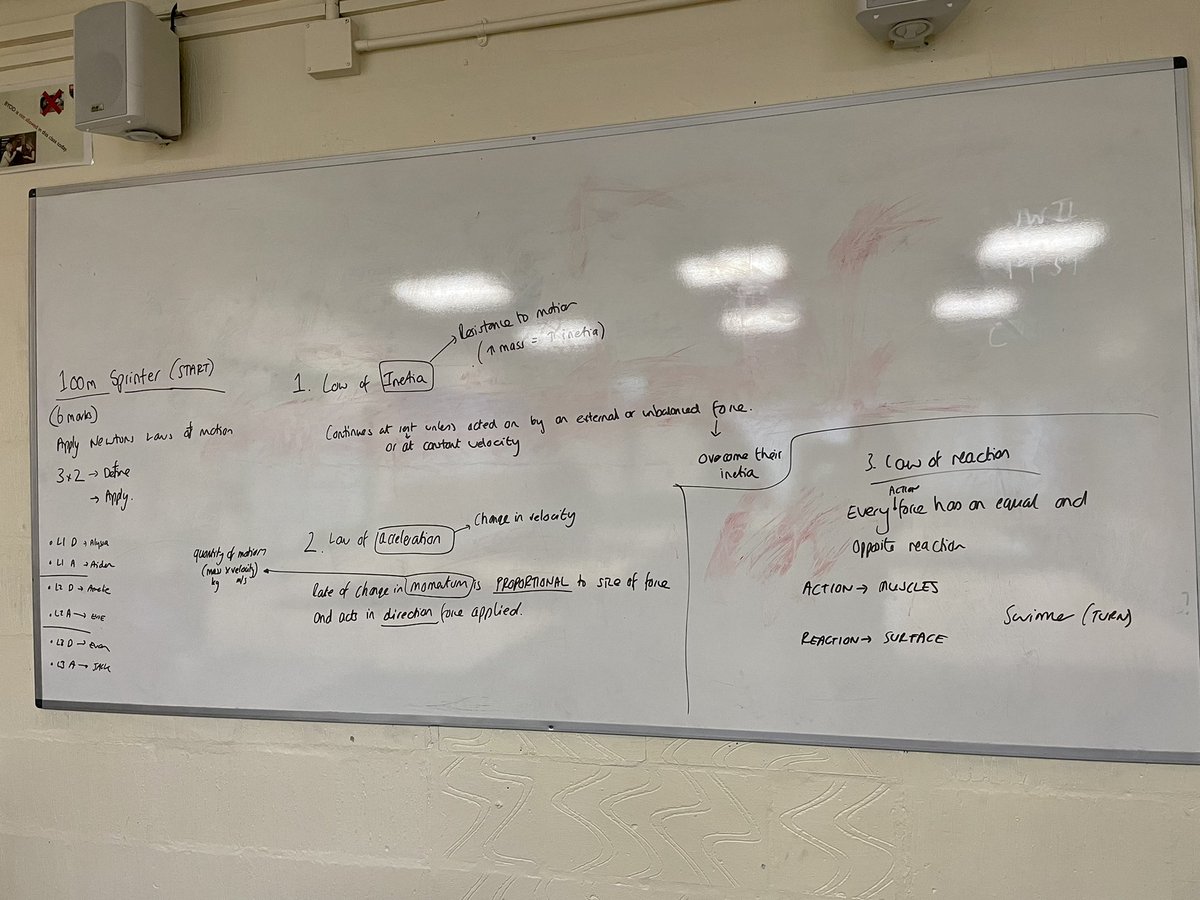 BYOD is not allowed in this class today
100m Sprinter (START)
(6 marks)
Apply Newton Laws of motion
3x2 → Define
→ Apply.
• L1 D →
• L1 A → Aiden
• L2 D →
• L2 A →
• L3 D → Evan
• L3 A → Jack
1. Law of Inetia
Resistance to motion
(↑ mass = ↑ inetia)
Continues at rest unless acted on by an external or unbalanced force.
or at contant velocity
↓
Overcome their
inetia
2. Law of acceleration → Change in velocity
quantity of motion
(mass x velocity)
kg m/s
Rate of change in momentum is PROPORTIONAL to size of force
and acts in direction force applied.
3. Law of reaction
ACTION
Every force has an equal and
Opposite reaction
ACTION → MUSCLES
Swimmer (TURN)
REACTION → SURFACE